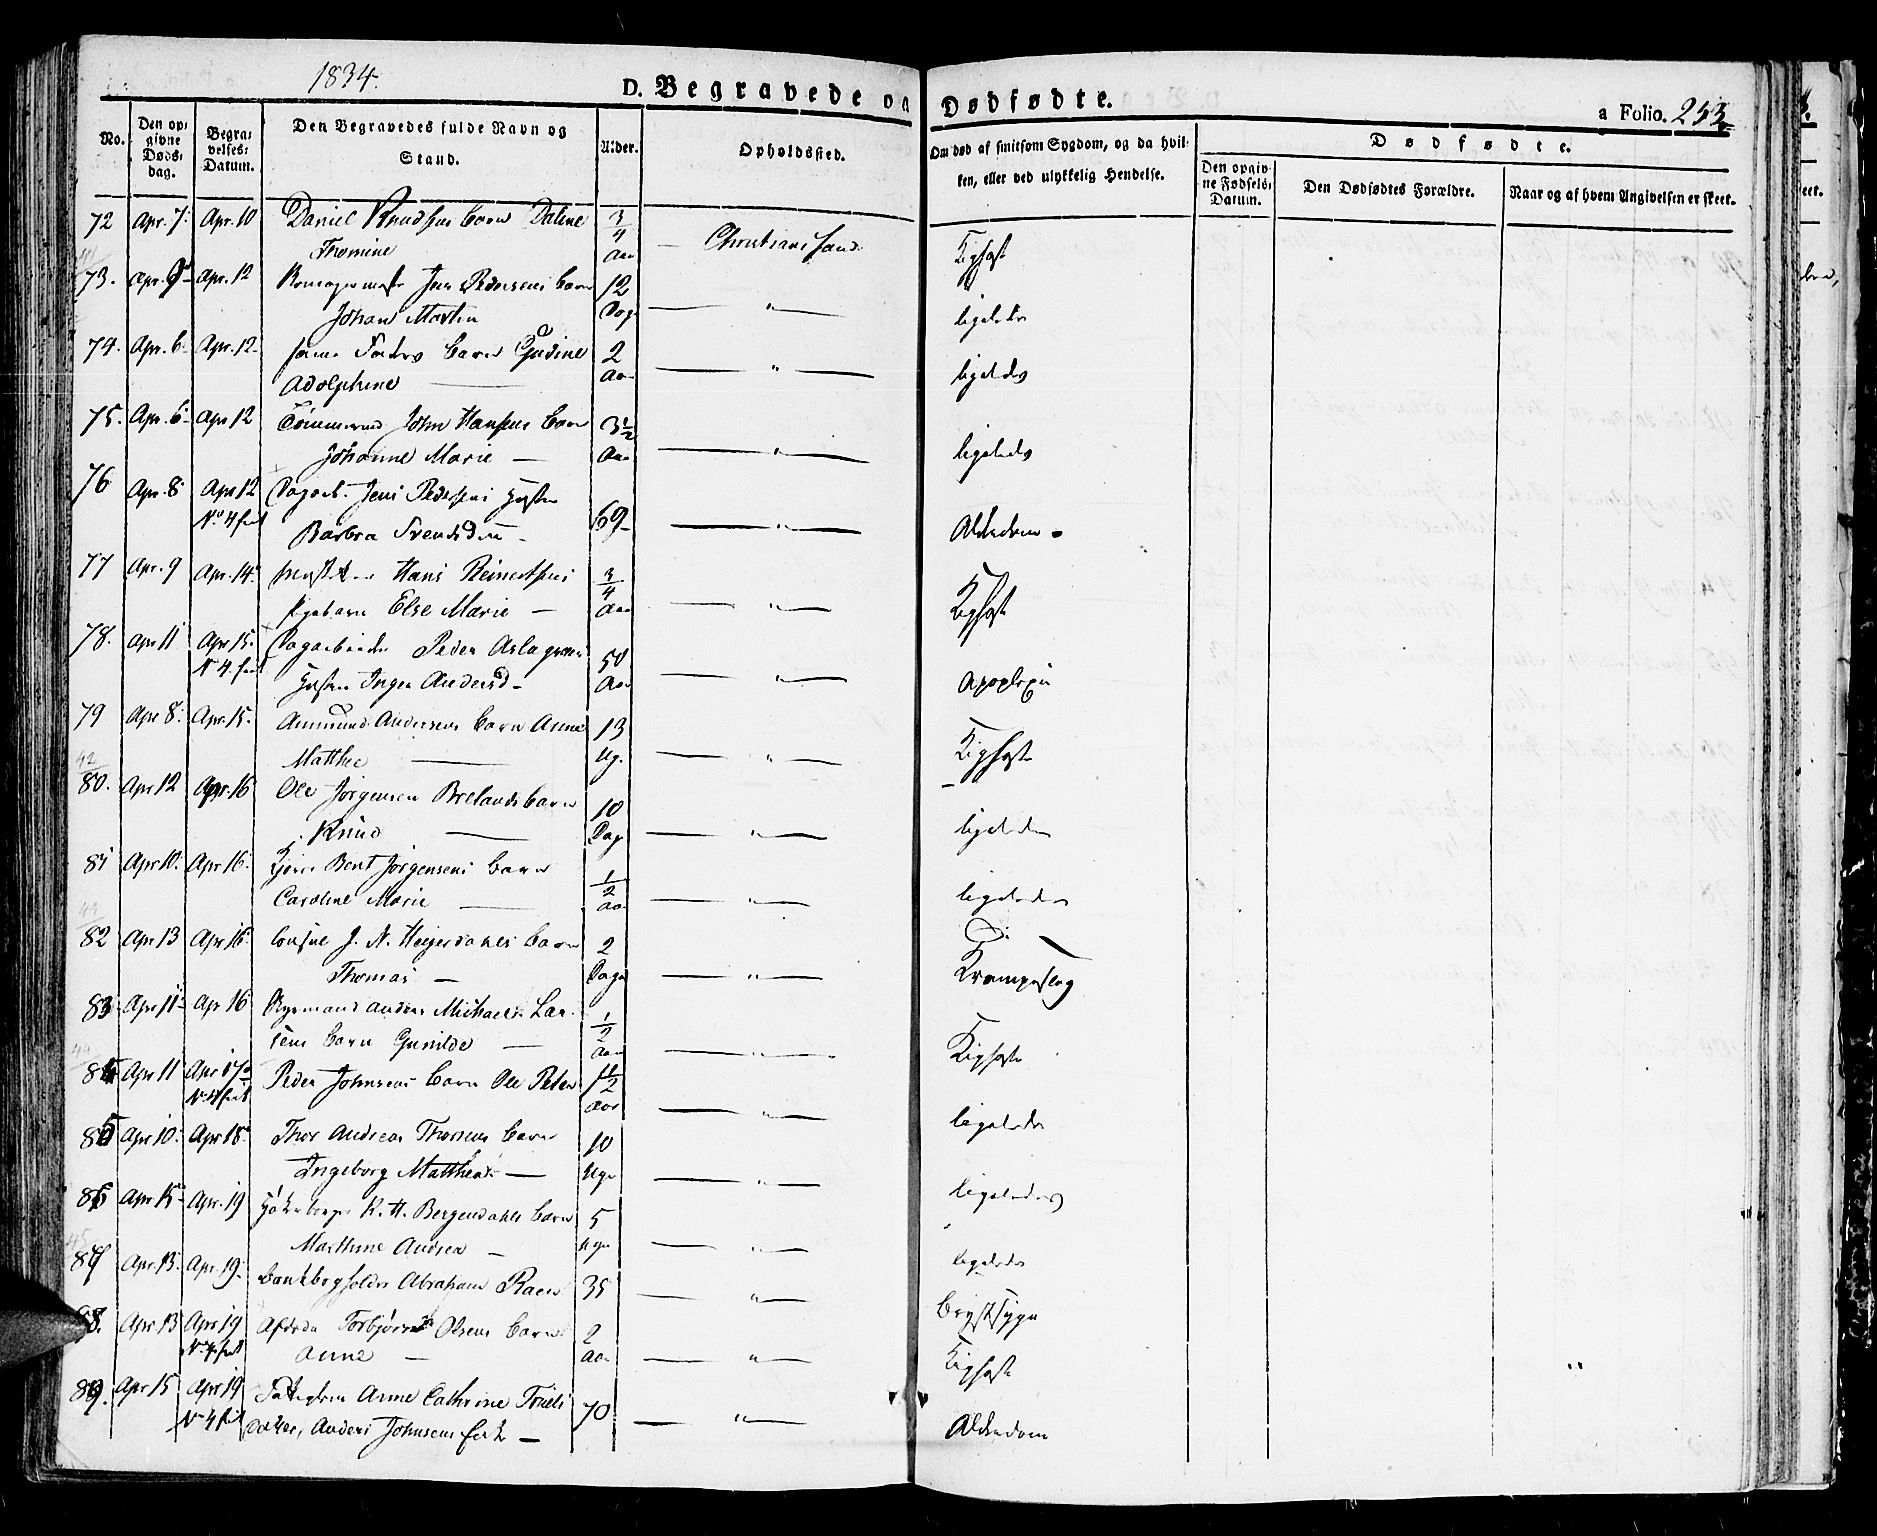 1834.
D. Begravede og Dødfødte.
a Folio. 253
No.
Den opgivne Døds-dag.
Begravelses-Datum.
Den Begravedes fulde Navn og Stand.
Alder.
Opholdssted.
Om død af smitsom Sygdom, og da hvilken, eller ved ulykkelig Hendelse.
Dødfødte.
Den opgivne Fødsels-Datum.
Den Dødfødtes Forældre.
Naar og af hvem Angivelsen er skeet.
72 Apr. 7. Apr. 10 Daniel Knudsens barn Daline 3/4
Thomine Aar Christiansand Kighoste
73. Apr. 9 Apr. 12 Jens Pedersens barn 12
Johan Martin Dage " ligeledes
74. Apr. 6. Apr. 12. samme Faders barn Gudine 2
Adolphine Aar " ligeledes
75. Apr. 6. Apr 12 Tømmermd John Hansens barn 3 1/2
Johanne Marie Aar " ligeledes
76 Apr. 8 Apr 12 Dagarb. Jens Pedersens Hustru
No 4 frit Barbra Svendsd 69 " Alderdom
77 Apr. 9 Apr. 14. Hans Reinertsens 3/4
pigebarn Else Marie Aar " Kighoste
78. Apr 11 Apr 15. Dagarbeider Peder Aslagsens 50
No 4 frit Hustru Inger Andersd Aar " Apoplexie
79 Apr 8. Apr. 15. Ammund Andersens barn Anne 13
Matthe Ug. " Kighoste
80. Apr 12 Apr 16 Ole Jørgensen Brelands barn 10
Knud Dage " ligeledes
81 Apr 10. Apr 16. Bent Jørgensens barn 1/2
Caroline Marie Aar " ligeledes
82 Apr 13 Apr 16. Consul J. N. Heyerdahls barn 2
Thomas Dage " Krampeslag
83 Apr 11 Apr 16 Anders Michael Lar-
sens barn Gunilde 1/2 Aar " Kighoste
84 Apr 11 Apr 17 Peder Johnsens barn Ole Peter 1 1/2
No 4 frit Aar " ligeledes
85 Apr 10. Apr 18. Thor Andreas Thorsens barn 10
Ingeborg Mathea Uger " ligeledes
86 Apr 15 Apr. 19 R. H. Bergendahls barn 5
Marthine Andrea Uger " ligeledes
87 Apr. 13. Apr. 19. Bankbogholder Abraham Roen 35 " Brystsyge
88. Apr 13 Apr 19 Afdøde Torbjørn Olsens barn 2
No 4 frit Anne Aar " Kighoste
89. Apr 15 Apr 19 Anne Cathrine Truels
No 4 frit datter, Anders Johnsens Enke 70 " Alderdom